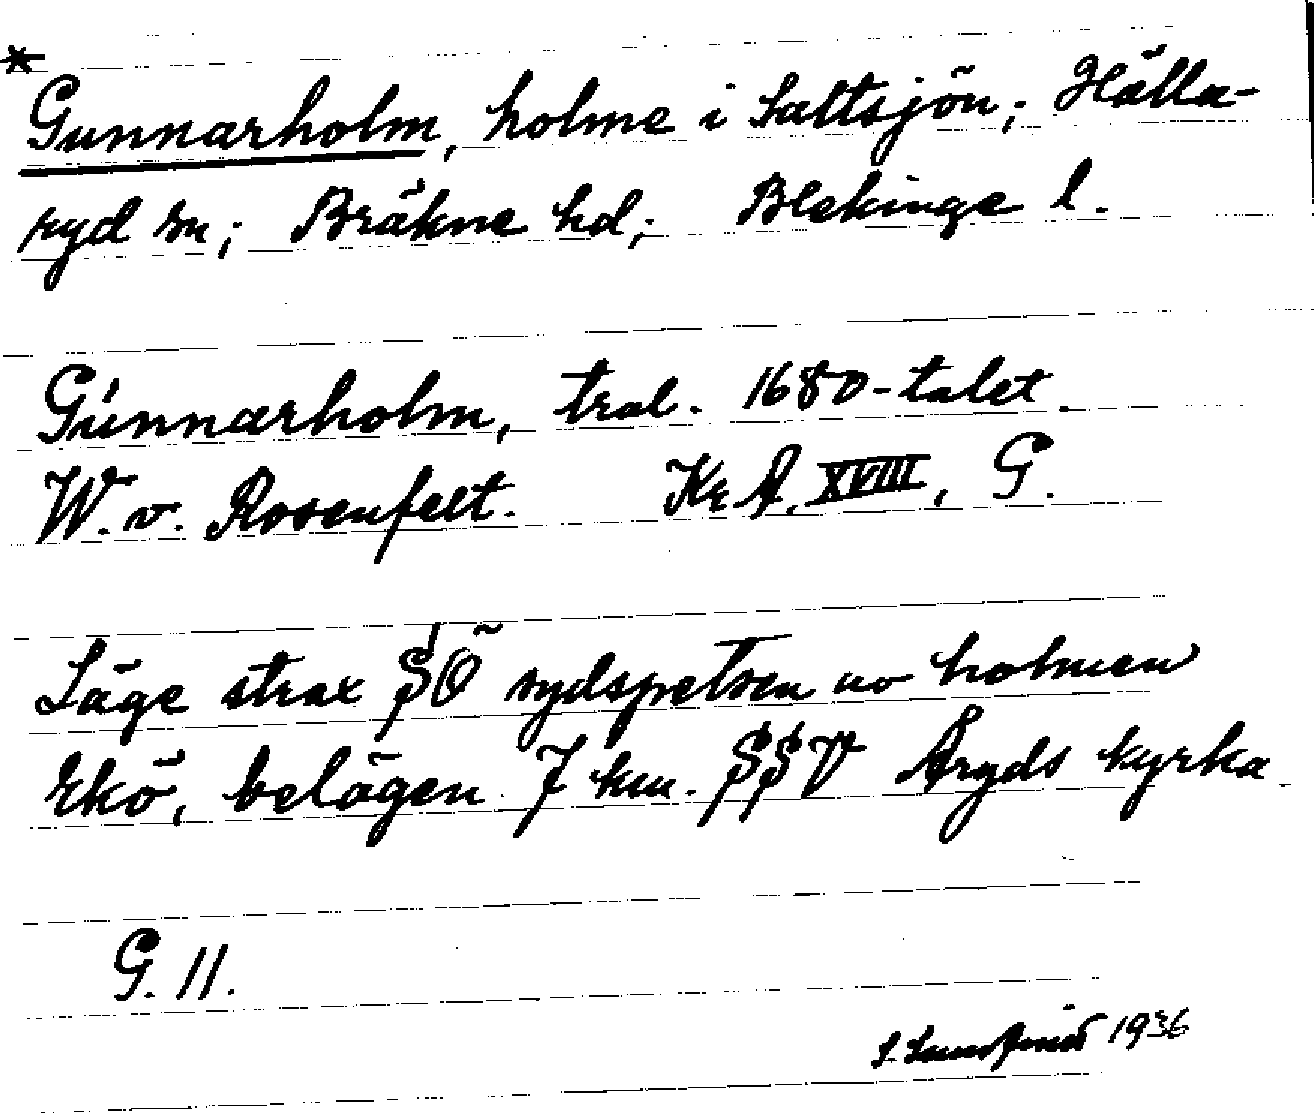 * Gunnarholm, holme i Saltsjön; Hälla-
ryd sn; Bräkne hd; Blekinge l.
Gunnarholm, tral. 1680-talet.
W. v. Rosenfelt. Kr A. XVIII, G.
Läge strax SÖ sydspetsen av holmen
Ekö, belägen 7 km. SSV Åryds kyrka
G. 11.
1936